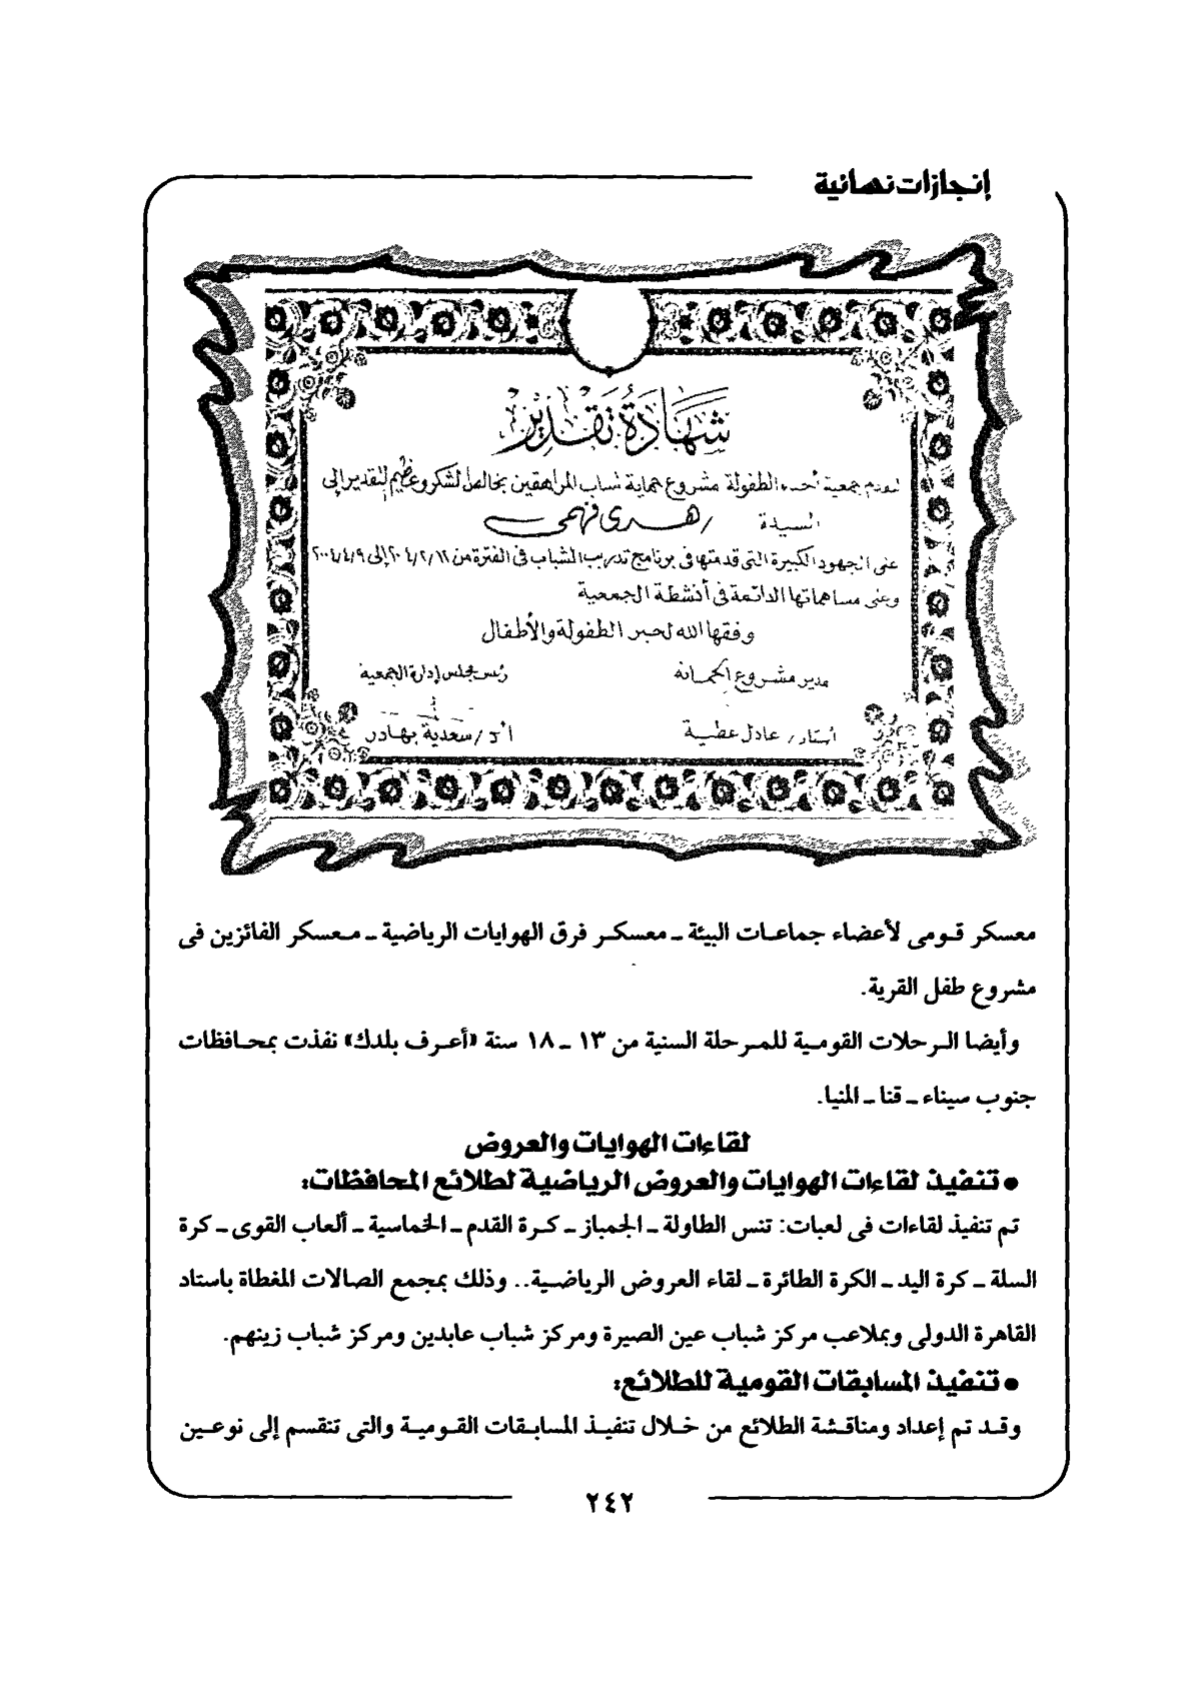 إنجازات نسائية
شهادة تقدير
جمعية الطفولة مشروع حماية شباب المراهقين بخالص الشكر وعظيم التقدير إلى
السيدة / هدى فهمى
على الجهود الكبيرة التى قدمتها فى برنامج تدريب الشباب فى الفترة من إلى ٢٠٠٤/٤/٩
وعلى مساهماتها الدائمة فى أنشطة الجمعية
وفقها الله لخير الطفولة والأطفال
مدير مشروع الحماية
رئيس مجلس إدارة الجمعية
أستاذ / عادل عطية
أ.د / سعدية بهادر
معسكر قومى لأعضاء جماعات البيئة ـ معسكر فرق الهوايات الرياضية ـ معسكر الفائزين فى
مشروع طفل القرية.
وأيضا الرحلات القومية للمرحلة السنية من ١٣ ـ ١٨ سنة «أعرف بلدك» نفذت بمحافظات
جنوب سيناء ـ قنا ـ المنيا.
لقاءات الهوايات والعروض
● تنفيذ لقاءات الهوايات والعروض الرياضية لطلائع المحافظات:
تم تنفيذ لقاءات فى لعبات: تنس الطاولة ـ الجمباز ـ كرة القدم ـ الخماسية ـ ألعاب القوى ـ كرة
السلة ـ كرة اليد ـ الكرة الطائرة ـ لقاء العروض الرياضية.. وذلك بمجمع الصالات المغطاة باستاد
القاهرة الدولى وبملاعب مركز شباب عين الصيرة ومركز شباب عابدين ومركز شباب زينهم.
● تنفيذ المسابقات القومية للطلائع:
وقد تم إعداد ومناقشة الطلائع من خلال تنفيذ المسابقات القومية والتى تنقسم إلى نوعين
٢٤٢